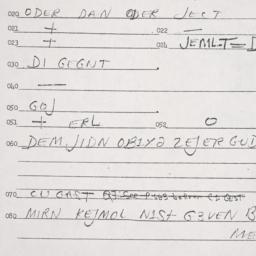 020 ODER DAN ODER JECT
021 + 022 —
023 + 024 JEML-T=
030 DI GEGNT
040 —
050 GOJ
051 + ERL 052 O
060 DEM JIDN OBIYD ZEJER GUD
070 CU GAST
080 MIRN KEJMOL NISHT GEVEN B